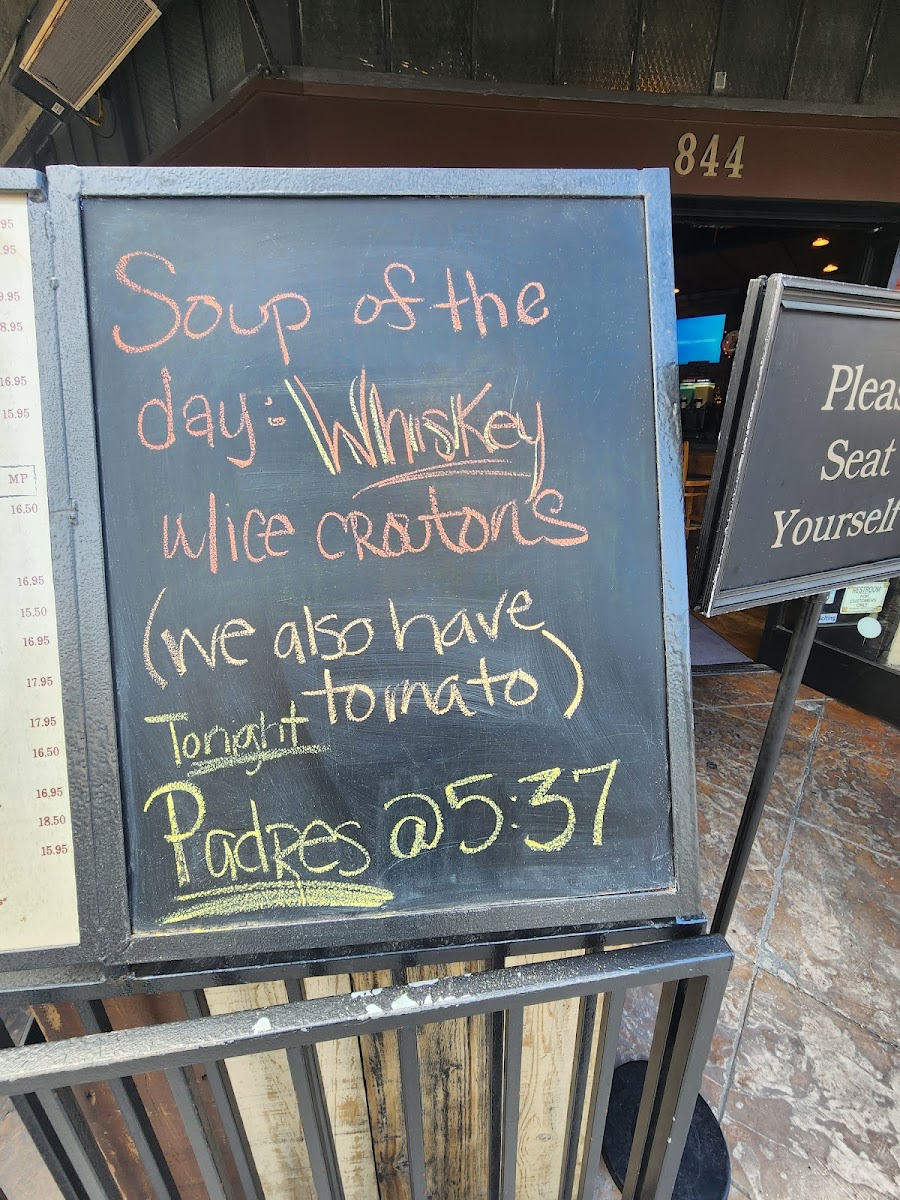 844
Soup of the
day: Whiskey
w/ice croutons
(we also have
tomato)
Tonight
Padres @ 5:37
Pleas
Seat
Yourself
RESTROOM
FOR
CUSTOMERS
ONLY
95
.95
9.95
8.95
16.95
15.95
MP
16.50
16.95
15.50
16.95
17.95
17.95
16.50
16.95
18.50
15.95